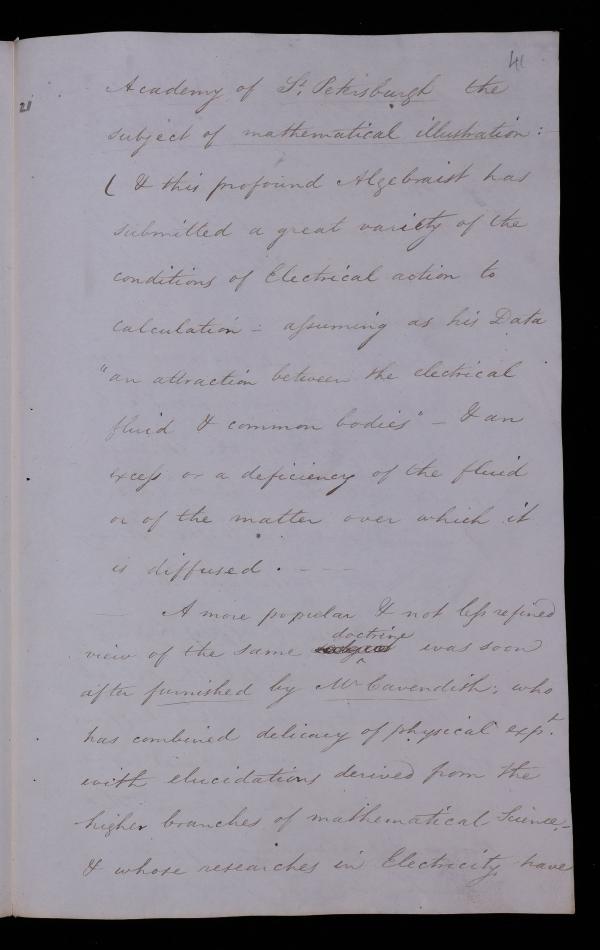 41
21
Academy of St. Petersburgh the
subject of mathematical illustration:
( & this profound Algebraist has
submitted a great variety of the
conditions of Electrical action to
calculation - assuming as his Data
"an attraction between the electrical
fluid & common bodies" - & an
excess or a deficiency of the fluid
or of the matter over which it
is diffused. - - -
— A more popular & not less refined
doctrine
view of the same subject was soon
after furnished by Mr Cavendish; who
has combined delicacy of physical expt.
with elucidations derived from the
higher branches of mathematical Science,-
& whose researches in Electricity have